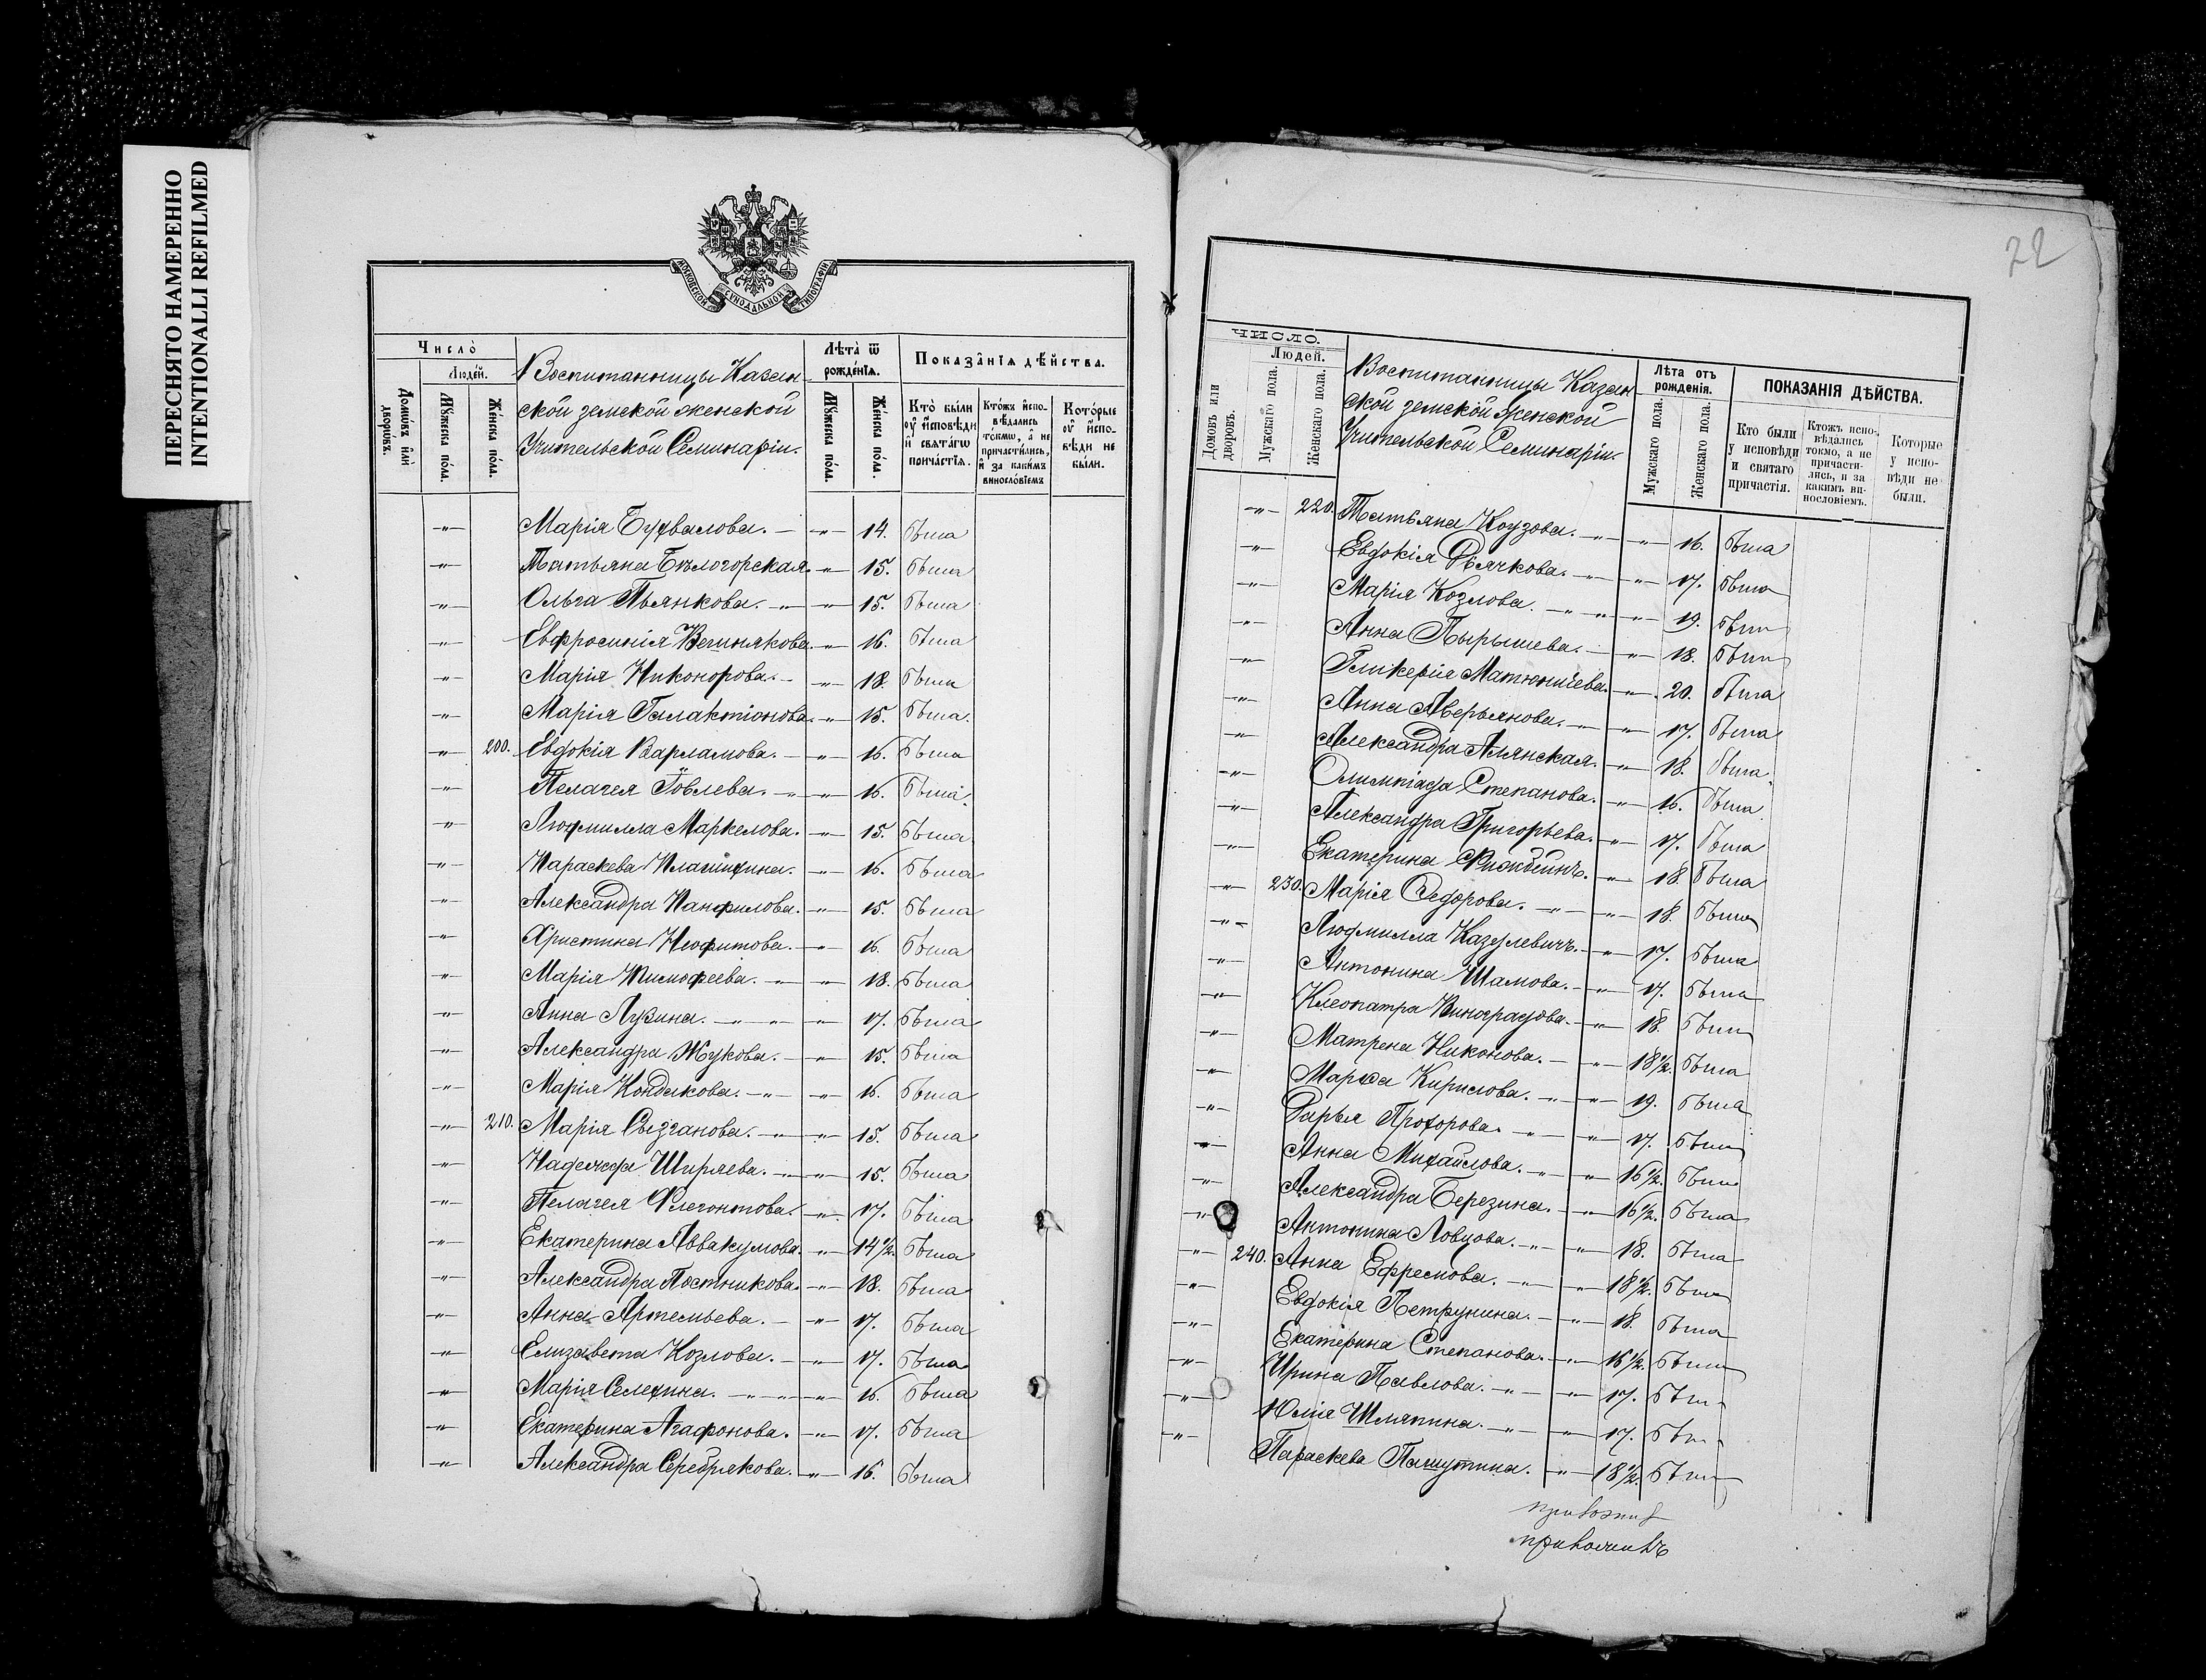 ПЕРЕСНЯТО НАМЕРЕННО
INTENTIONALLI REFILMED
МОСКОВСКОЙ СѴНОДАЛЬНОЙ ТИПОГРАФІИ
Число̀
Людей.
Домѡвъ и҆лѝ дворѡвъ.
Мꙋжеска по́ла.
Же́нска по́ла.
Воспитанницы Казан
ской земской женской
Учительской Семинаріи.
Лѣта̀ ѿ рожде́нїѧ.
Мꙋжеска по́ла.
Же́нска по́ла.
Показа̑нїѧ дѣ́йства.
Кто̀ бы́ли ᲂу҆ и҆сповѣди и҆ свѧта́гѡ прича́стїѧ.
Кто́жъ и҆спо-вѣдались то́кмѡ, а҆ не причасти́лись, и҆ за каки́мъ винослѡ́вїемъ
Кото́рые ᲂу҆ и҆спо-вѣди не бы́ли.
-"- Марія Бухвалова. - -"- 14. Была
-"- Татьяна Бѣлогорская. -"- 15. Была
-"- Ольга Пьянкова. -"- -"- 15. Была
-"- Евфросинія -"- 16. Была
-"- Марія Никонорова. - -"- 18. Была
-"- Марія Галактіонова -"- 15. Была.
-"- 200. Евдокія Варламова. - -"- 16. Была
-"- Пелагея Іовлева. -"- -"- 16. Была.
-"- Людмилла Маркелова. -"- 15. Была
-"- Параскева -"- 16. Была
-"- Александра Панфилова. -"- 15. Была
-"- Христина Неофитова. -"- 16. Была
-"- Марія Тимофеева. -"- -"- 18. Была
-"- Анна Лузина. -"- -"- -"- 17. Была
-"- Александра Жукова. - -"- 15. Была
-"- Марія Кондакова. -"- -"- 16. Была
-"- 210. Марія Сызганова. -"- -"- 15. Была
-"- Надежда Ширяева. -"- -"- 15. Была
-"- Пелагея Флегонтова. -"- 17. Была
-"- Екатерина Аввакумова. -"- 14½. Была
-"- Александра Постникова. -"- 18. Была
-"- Анна Артемьева. - -"- 17. Была
-"- Елизавета Козлова. - -"- 17. Была
-"- Марія Селехина. -"- -"- -"- 16. Была
-"- Екатерина Агафонова. -"- 17. Была
-"- Александра Серебрякова. -"- 16. Была
22
ЧИСЛО.
Людей.
Домовъ или дворовъ.
Мужскаго пола.
Женскаго пола.
Воспитанницы Казан
ской земской женской
Учительской Семинаріи.
Лѣта отъ рожденія.
Мужскаго пола.
Женскаго пола.
ПОКАЗАНІЯ ДѢЙСТВА.
Кто были у исповѣди и святаго причастія.
Ктожъ испо-вѣдались токмо, а не причасти-лись, и за какимъ ви-нословіемъ.
Которые у испо-вѣди не были.
-"- 220. Татьяна Коузова. -"- -"- 16. Была
-"- Евдокія Дьячкова. -"- -"- 17. Была
-"- Марія Козлова. -"- -"- -"- 19. Была
-"- Анна Пырышева. - -"- 18. Была
-"- Гликерія Матюничева. -"- 20. Была
-"- Анна Аверьянова. -"- -"- 17. Была
-"- Александра Алянская. -"- 18. Была
-"- Олимпіада Степанова. -"- 16. Была
-"- Александра Григорьева. -"- 17. Была
-"- Екатерина -"- 18. Была
-"- 230. Марія Ѳедорова. -"- -"- 18. Была
-"- Людмилла Казулевичъ. -"- 17. Была
-"- Антонина Шамова. -"- 17. Была
-"- Клеопатра Виноградова. -"- 18. Была
-"- Матрена Никонова. - -"- 18½. Была
-"- Марѳа Кирилова. -"- -"- 19. Была
-"- Дарья Прохорова. -"- -"- 17. Была
-"- Анна Михайлова. -"- -"- 16½. Была
-"- Александра Березина. -"- 16½. Была
-"- Антонина Ловцова. -"- -"- 18. Была
-"- 240. Анна Ефремова. -"- -"- 18½. Была
-"- Евдокія Петрунина. - -"- 18. Была
-"- Екатерина Степанова. -"- 16½. Была
-"- Ирина Павлова. -"- -"- 17. Была
-"- Юлія Шляпина. -"- -"- 17. Была
-"- Параскева Пашутина. -"- 18½. Была